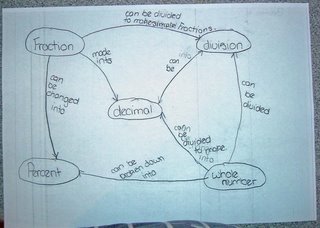 can be divided
to make simple fractions.
Fraction
division
made
into
into
can
be
can
be
changed
into
decimal
can
be
divided
can
be
divided
to make
into
Percent
can be
broken down
into
whole
number